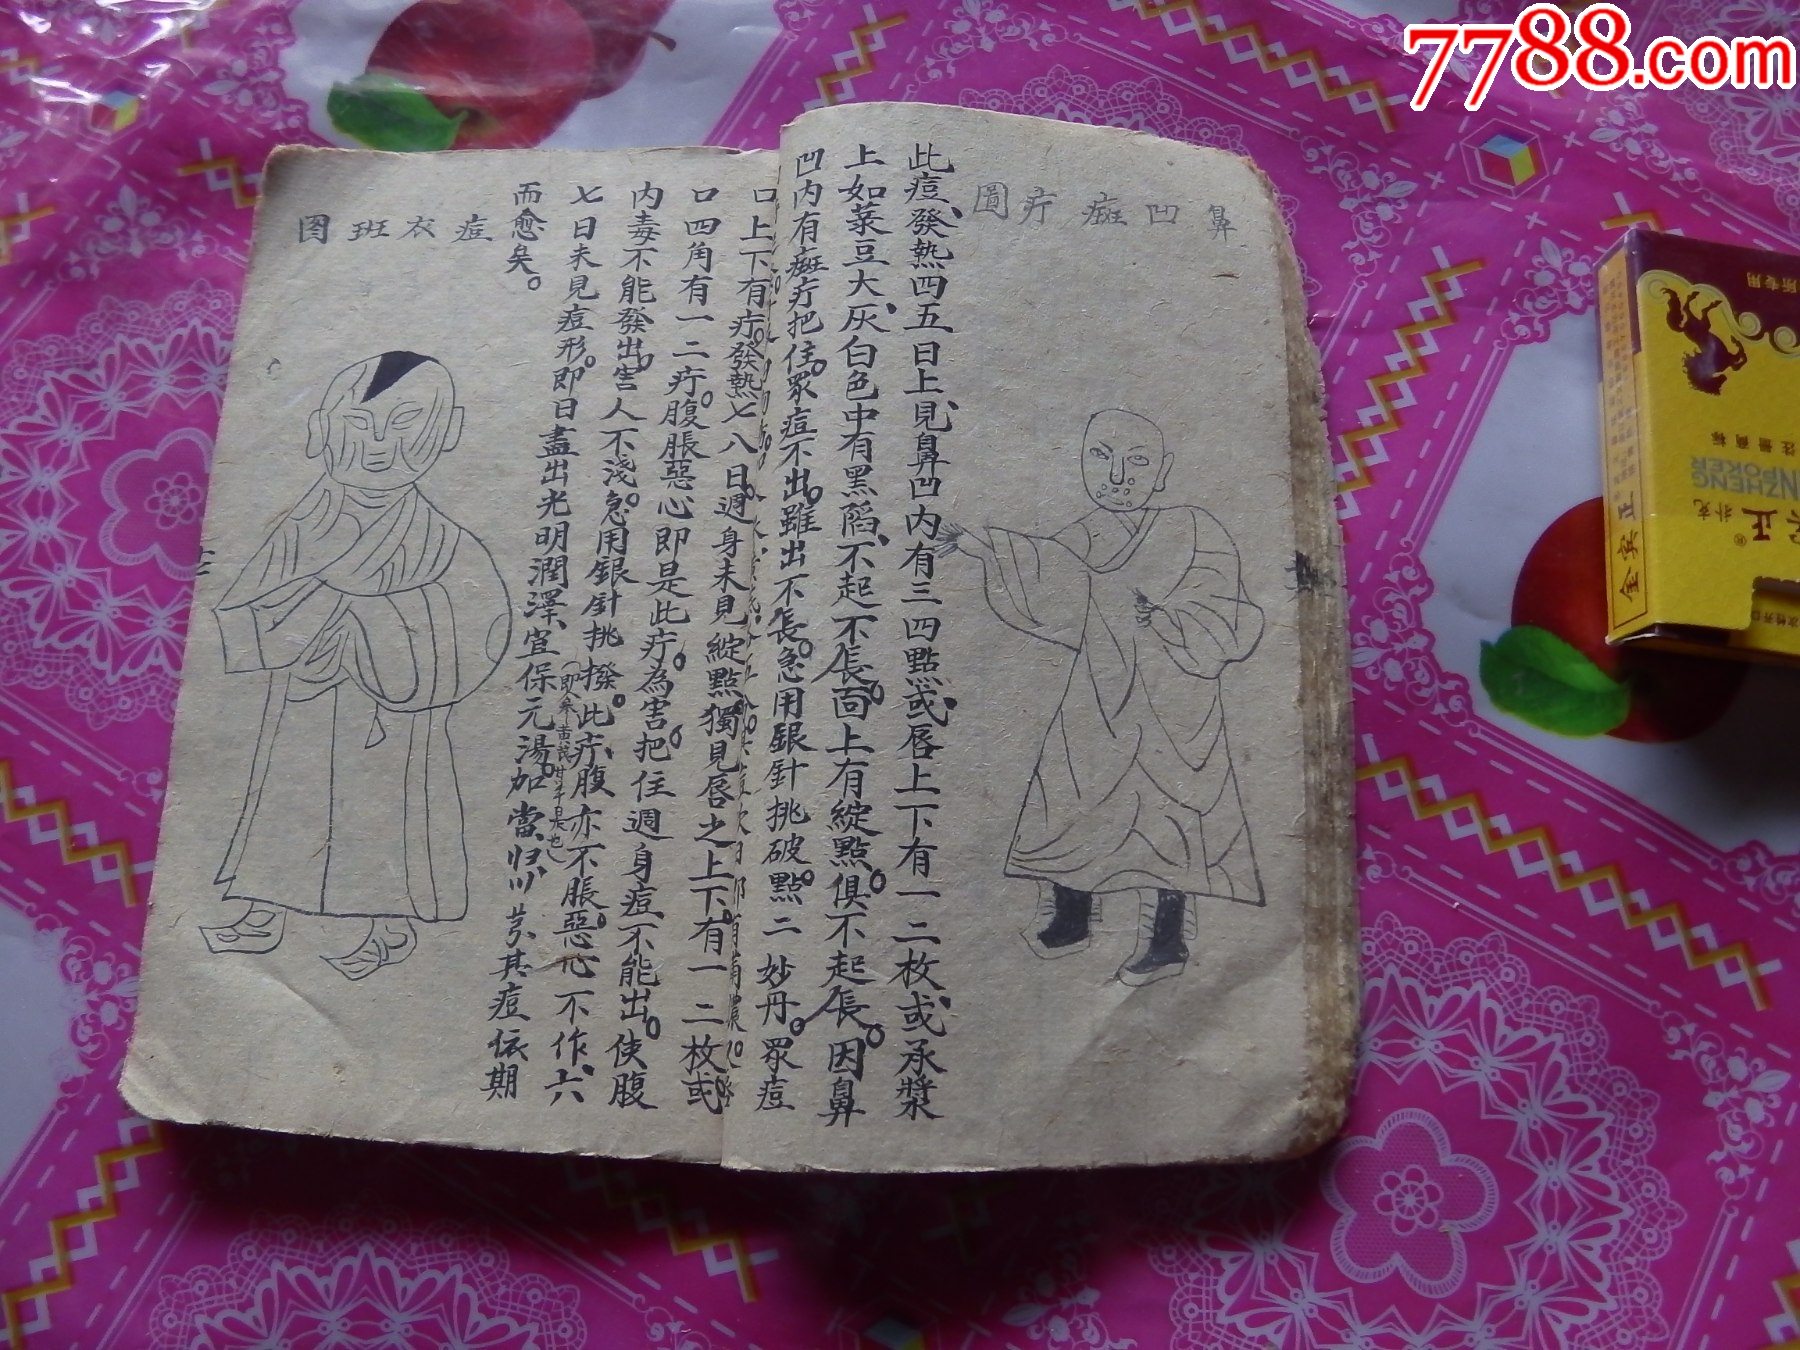 7788.com
鼻凹癍疔圖
此痘、發熱四五日上見、鼻凹内有三四點、或唇上下有一二枚、或承漿
上如菉豆大、灰白色中有黑陷、不起不長。面上有綻點。俱不起長。因鼻
凹内有癍疔把住。眾痘不出。雖出不長。急用銀針挑破。點二妙丹。眾痘
口上下有疔。發熱七八日。週身未見綻點。獨見唇之上下。有一二枚。或
口四角有一二疔。腹脹惡心即是此疔。為害。把住週身痘不能出。使腹
内毒不能發出。害人不淺。急用銀針挑撥。此疔、腹亦不脹。惡心不作、六
七日未見痘形。即日盡出光明潤澤、宜保元湯。加當归川芎其痘依期
(即人參黄芪甘草是也)
而愈矣。
痘衣班图
金宾正
宾正
朴克
ZHENG
注册商标
所专用